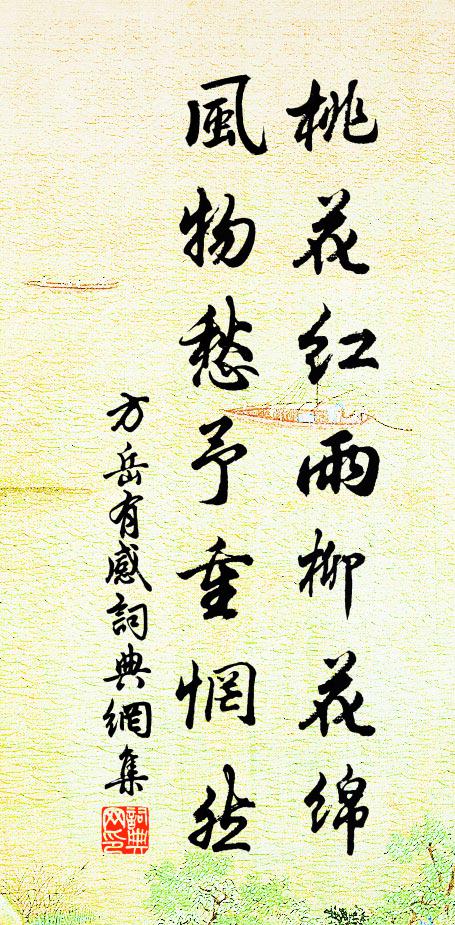 桃花红雨柳花绵
風物愁予重惘然
方岳有感詞典網集
詞典網印